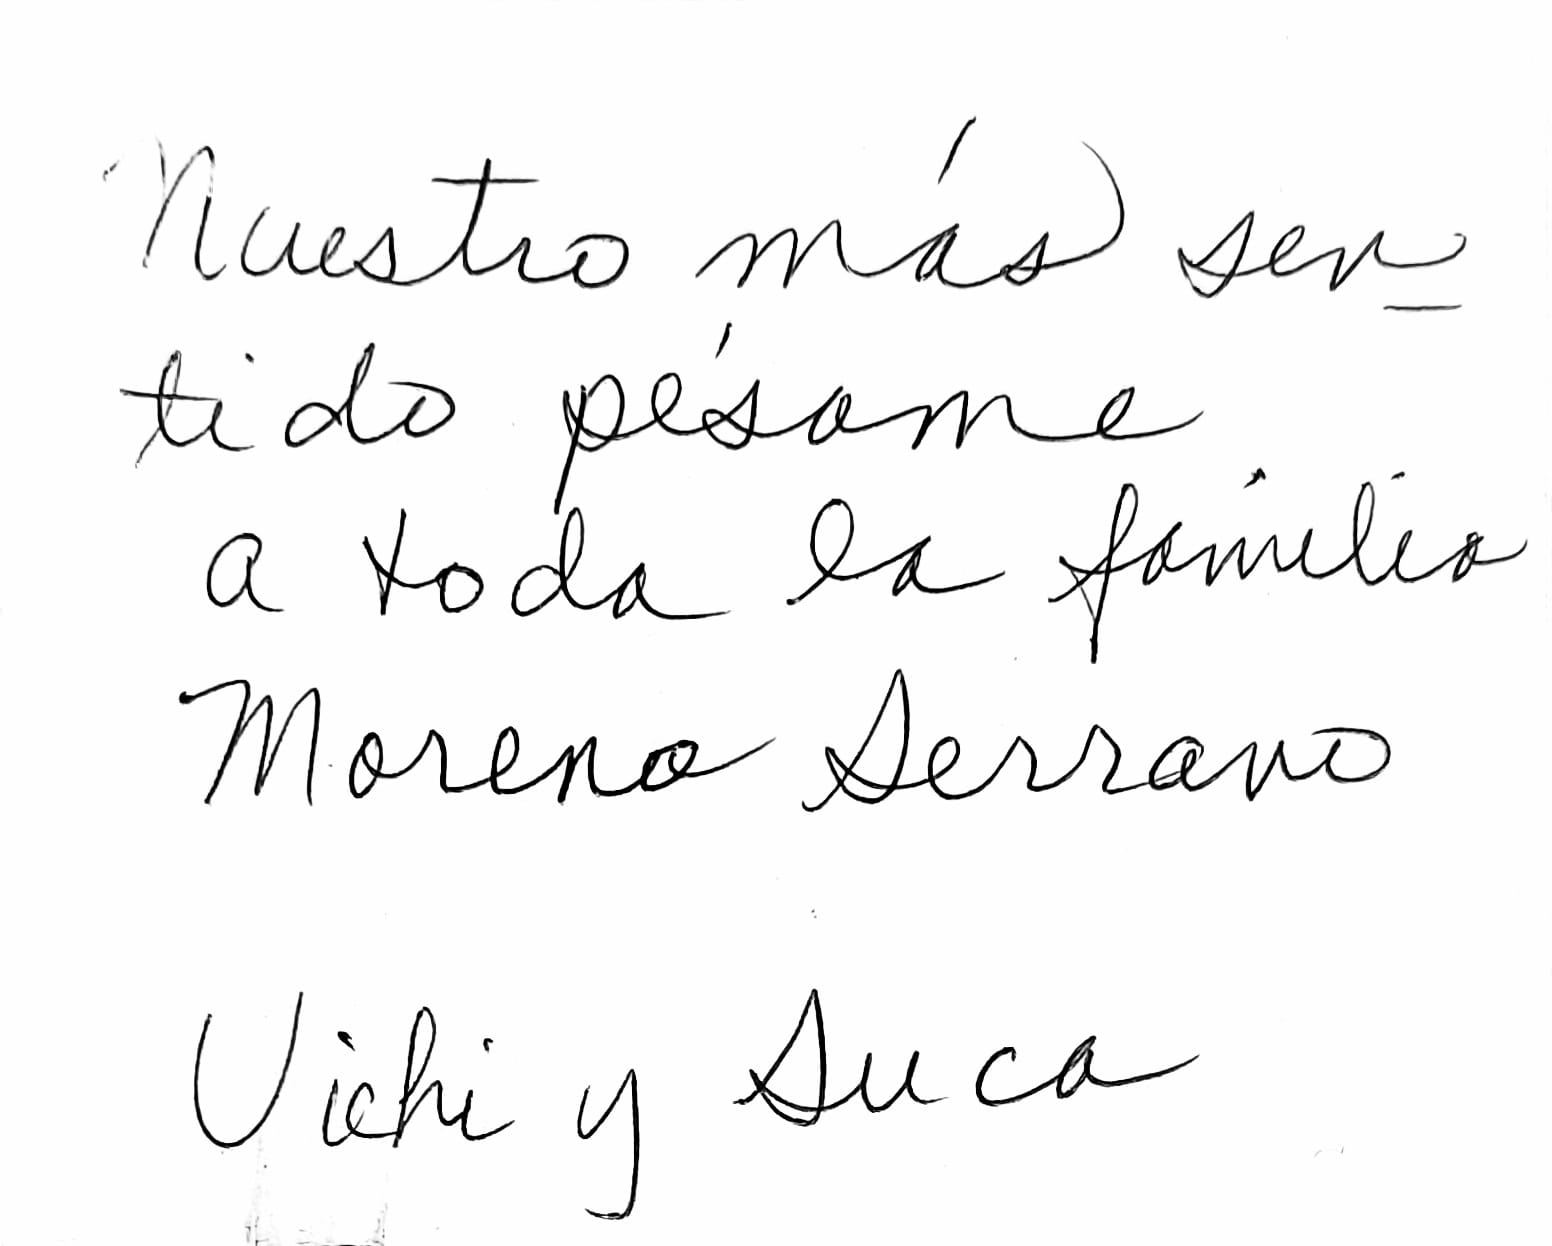 Nuestro más sen-
tido pésame
a toda la familia
Moreno Serrano
Vichi y Suca